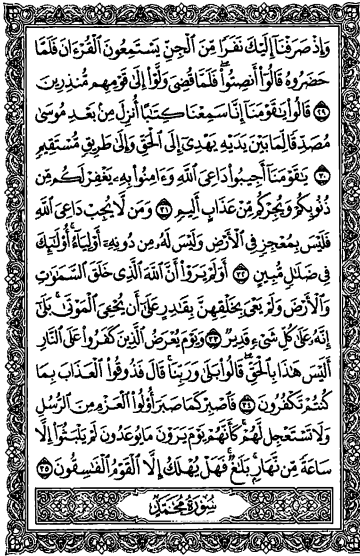 وَإِذْ صَرَفْنَآ إِلَيْكَ نَفَرًا مِّنَ ٱلْجِنِّ يَسْتَمِعُونَ ٱلْقُرْءَانَ فَلَمَّا
حَضَرُوهُ قَالُوٓا۟ أَنصِتُوا۟ ۖ فَلَمَّا قُضِىَ وَلَّوْا۟ إِلَىٰ قَوْمِهِم مُّنذِرِينَ
٢٩ قَالُوا۟ يَـٰقَوْمَنَآ إِنَّا سَمِعْنَا كِتَـٰبًا أُنزِلَ مِنۢ بَعْدِ مُوسَىٰ
مُصَدِّقًا لِّمَا بَيْنَ يَدَيْهِ يَهْدِىٓ إِلَى ٱلْحَقِّ وَإِلَىٰ طَرِيقٍ مُّسْتَقِيمٍ
٣٠ يَـٰقَوْمَنَآ أَجِيبُوا۟ دَاعِىَ ٱللَّهِ وَءَامِنُوا۟ بِهِۦ يَغْفِرْ لَكُم مِّن
ذُنُوبِكُمْ وَيُجِرْكُم مِّنْ عَذَابٍ أَلِيمٍ ٣١ وَمَن لَّا يُجِبْ دَاعِىَ ٱللَّهِ
فَلَيْسَ بِمُعْجِزٍ فِى ٱلْأَرْضِ وَلَيْسَ لَهُۥ مِن دُونِهِۦٓ أَوْلِيَآءُ ۚ أُو۟لَـٰٓئِكَ
فِى ضَلَـٰلٍ مُّبِينٍ ٣٢ أَوَلَمْ يَرَوْا۟ أَنَّ ٱللَّهَ ٱلَّذِى خَلَقَ ٱلسَّمَـٰوَٰتِ
وَٱلْأَرْضَ وَلَمْ يَعْىَ بِخَلْقِهِنَّ بِقَـٰدِرٍ عَلَىٰٓ أَن يُحْـِۧىَ ٱلْمَوْتَىٰ ۚ بَلَىٰٓ
إِنَّهُۥ عَلَىٰ كُلِّ شَىْءٍ قَدِيرٌ ٣٣ وَيَوْمَ يُعْرَضُ ٱلَّذِينَ كَفَرُوا۟ عَلَى ٱلنَّارِ
أَلَيْسَ هَـٰذَا بِٱلْحَقِّ ۖ قَالُوا۟ بَلَىٰ وَرَبِّنَا ۚ قَالَ فَذُوقُوا۟ ٱلْعَذَابَ بِمَا
كُنتُمْ تَكْفُرُونَ ٣٤ فَٱصْبِرْ كَمَا صَبَرَ أُو۟لُوا۟ ٱلْعَزْمِ مِنَ ٱلرُّسُلِ
وَلَا تَسْتَعْجِل لَّهُمْ ۚ كَأَنَّهُمْ يَوْمَ يَرَوْنَ مَا يُوعَدُونَ لَمْ يَلْبَثُوٓا۟ إِلَّا
سَاعَةً مِّن نَّهَارٍۭ ۚ بَلَـٰغٌ ۚ فَهَلْ يُهْلَكُ إِلَّا ٱلْقَوْمُ ٱلْفَـٰسِقُونَ ٣٥
سُورَةُ مُحَمَّدٍ